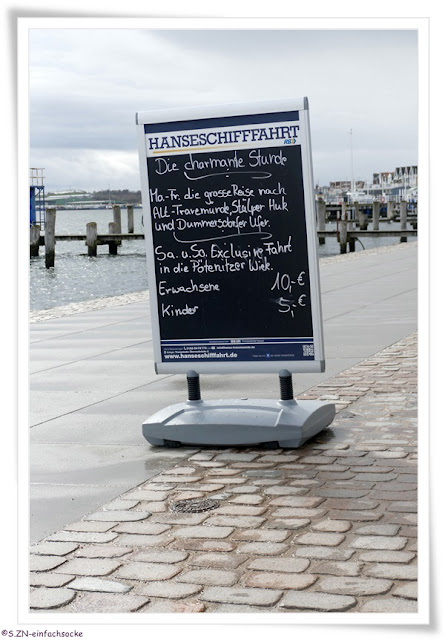 HANSESCHIFFFAHRT
Die charmante Stunde
Mo-Fr. die grosse Reise nach
Alt-Travemünde, Stülper Huk
und Dummersdorfer Ufer.
Sa. u. So. Exclusive Fahrt
in die Pötenitzer Wiek.
Erwachsene 10,-€
Kinder 5,-€
www.hanseschifffahrt.de
©S.ZN-einfachsocke